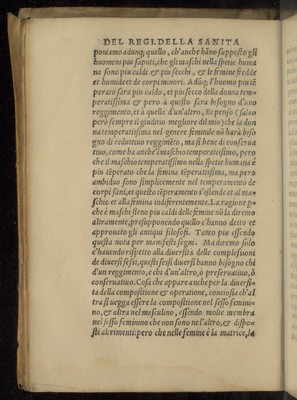 DEL REGI. DELLA SANITA
poniamo adunq; quello, ch'anche hãno supposto gli
huomeni piu saputi, che gli maschi nella spetie huma
na sono piu caldi & piu secchi, & le femine fredde
et humide et de corpi minori. Adũq; l'huomo piu tẽ
perato sara piu caldo, et piu secco della donna tem-
peratissima & però à questo sara bisogno d'uno
reggimento, et à quella d'un'altro, Et penso (saluo
però sempre il giuditio megliore dil mio) che la don
na temperatissima nel genere feminile nõ harà biso
gno di reduttiuo reggimẽto, ma si bene di conserua
tiuo, come ha anche i'maschio temperatissimo, pero
che il maschio temperatissimo nella spetie humana è
piu tẽperato che la femina tẽperatissima, ma pero
ambiduo sono simplicemente nel temperamento de
corpi sani, et questo tẽperamento s'estende et al ma-
schio et alla femina indiferentemente. La ragione p̃
che è maschi sieno piu caldi delle femine nõ la diremo
altramente, presupponendo quello c'hanno detto et
approuato gli antiqui filosofi. Tanto piu essendo
questa nota per manifesti segni. Ma diremo solo
c'hauendo rispetto alla diuersità delle complessioni
de diuersi sessi, questi sessi diuersi hanno bisogno chi
d'un reggimento, e chi d'un'altro, ò preseruatiuo, ò
conseruatiuo. Cosa che appare anche per la diuersi-
ta della compositione & operatione, conciosia ch'al
tra si uegga essere la compositione nel sesso femini-
no, & altra nel masculino, essendo molte membra
nel sesso feminino che non sono nel'altro, & dispon-
sti altrimenti: pero che nelle femine è la matrice, la